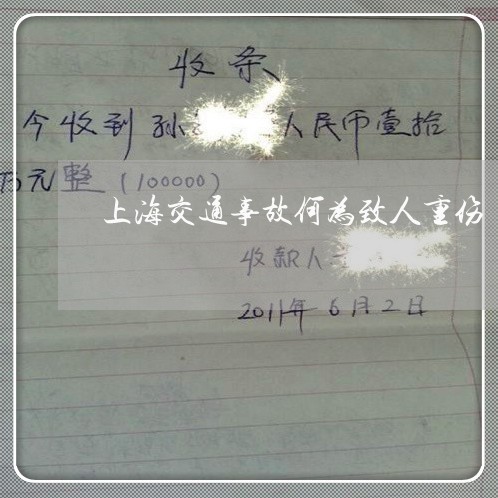 收条
今收到孙 人民币壹拾
万元整(100000)
上海交通事故何为致人重伤
收款人
2011年6月2日